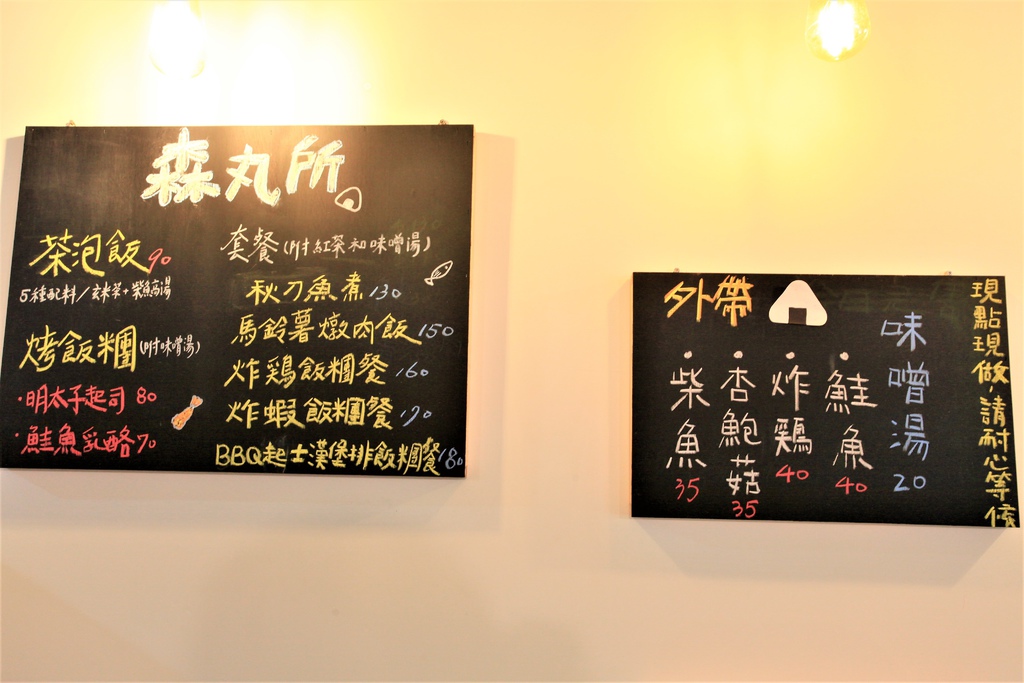 森丸所
茶泡飯 90
5種配料/玄米茶+柴魚高湯
烤飯糰(附味噌湯)
・明太子起司 80
・鮭魚乳酪 70
套餐(附紅茶和味噌湯)
秋刀魚煮 130
馬鈴薯燉肉飯 150
炸鶏飯糰餐 160
炸蝦飯糰餐 170
BBQ起士漢堡排飯糰餐 180
外帶
・柴魚 35
・杏鮑菇 35
・炸鶏 40
・鮭魚 40
味噌湯 20
現點現做,請耐心等候